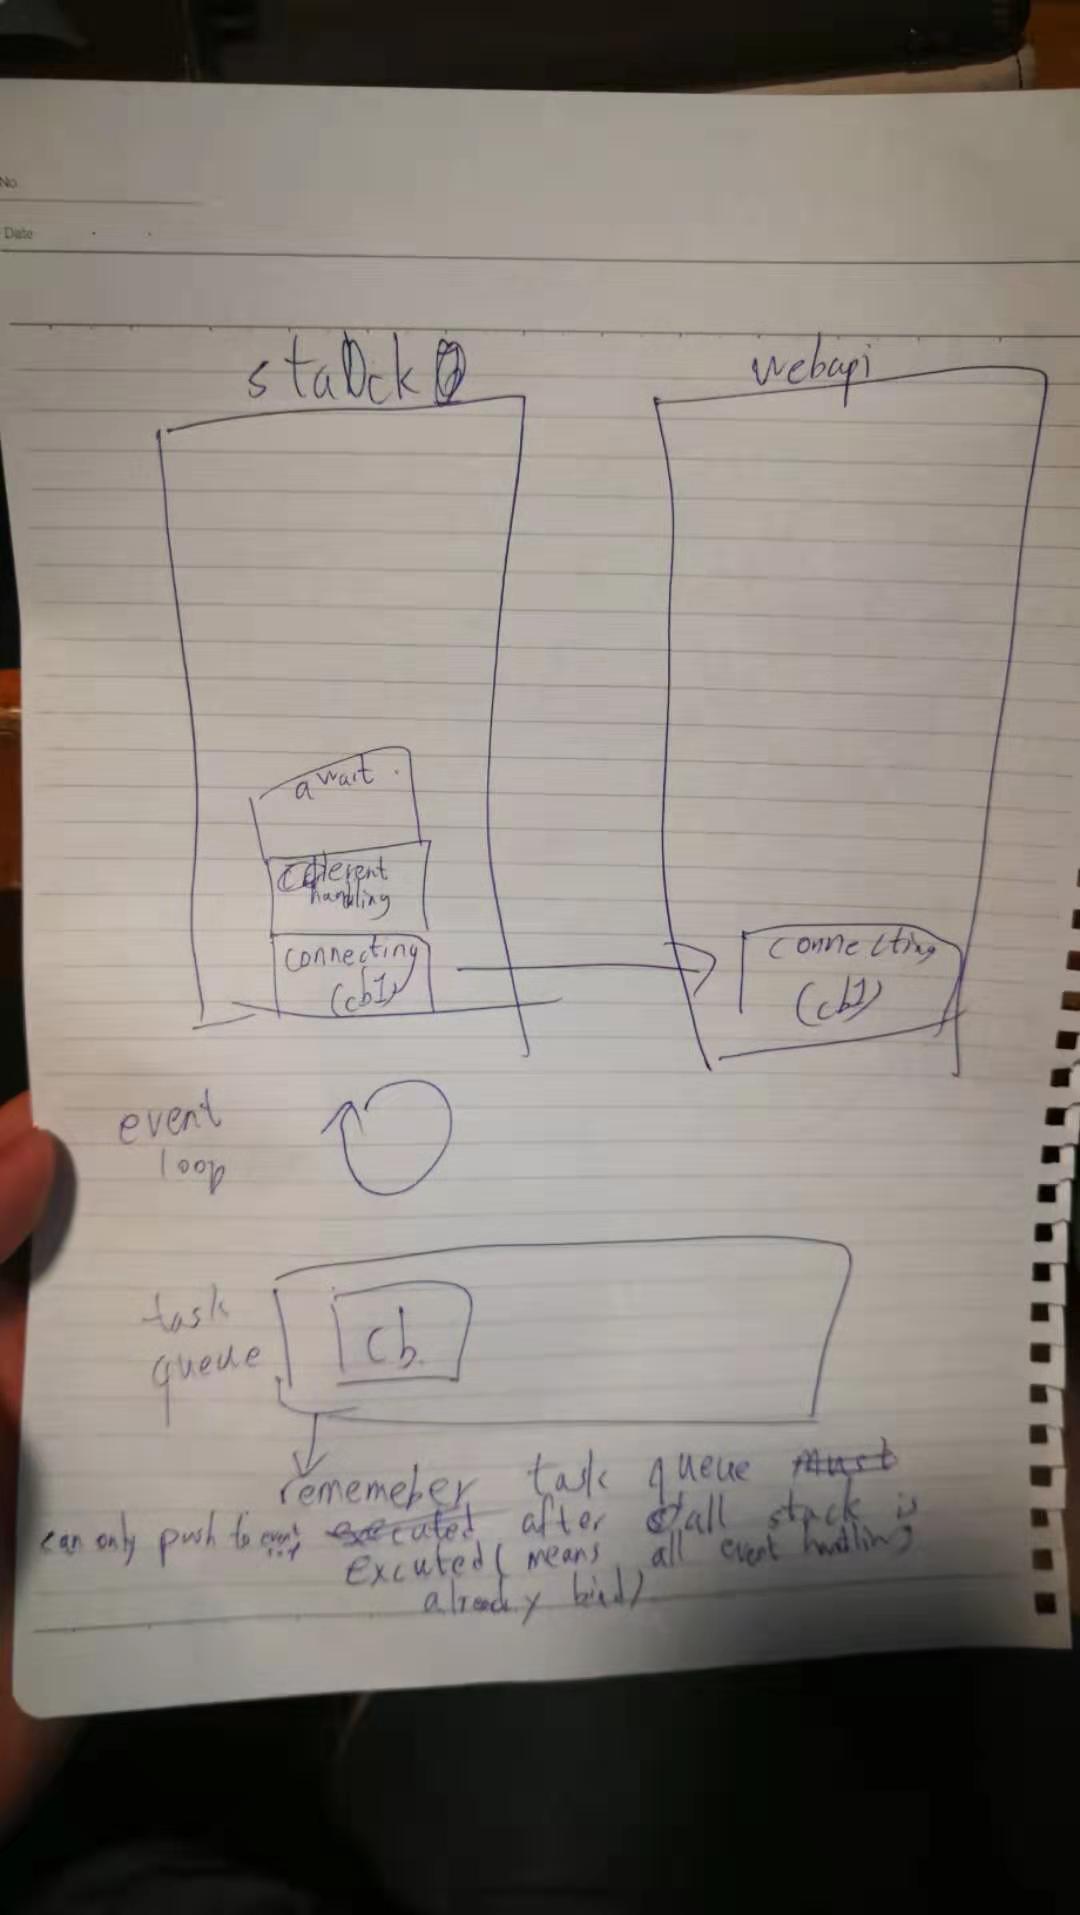 No.
Date
stack
webapi
await
handling
connecting
(cb1)
connecting
(cb1)
event
loop
task
queue
cb
rememeber task queue must
can only push to event executed after all stack is
excuted (means all event handling
already bind)